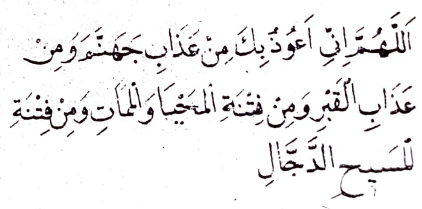 اَللّٰهُمَّ اِنِّىْ اَعُوْذُ بِكَ مِنْ عَذَابِ جَهَنَّمَ وَمِنْ
عَذَابِ الْقَبْرِ وَمِنْ فِتْنَةِ الْمَحْيَا وَالْمَمَاتِ وَمِنْ فِتْنَةِ
الْمَسِيحِ الدَّجَّالِ